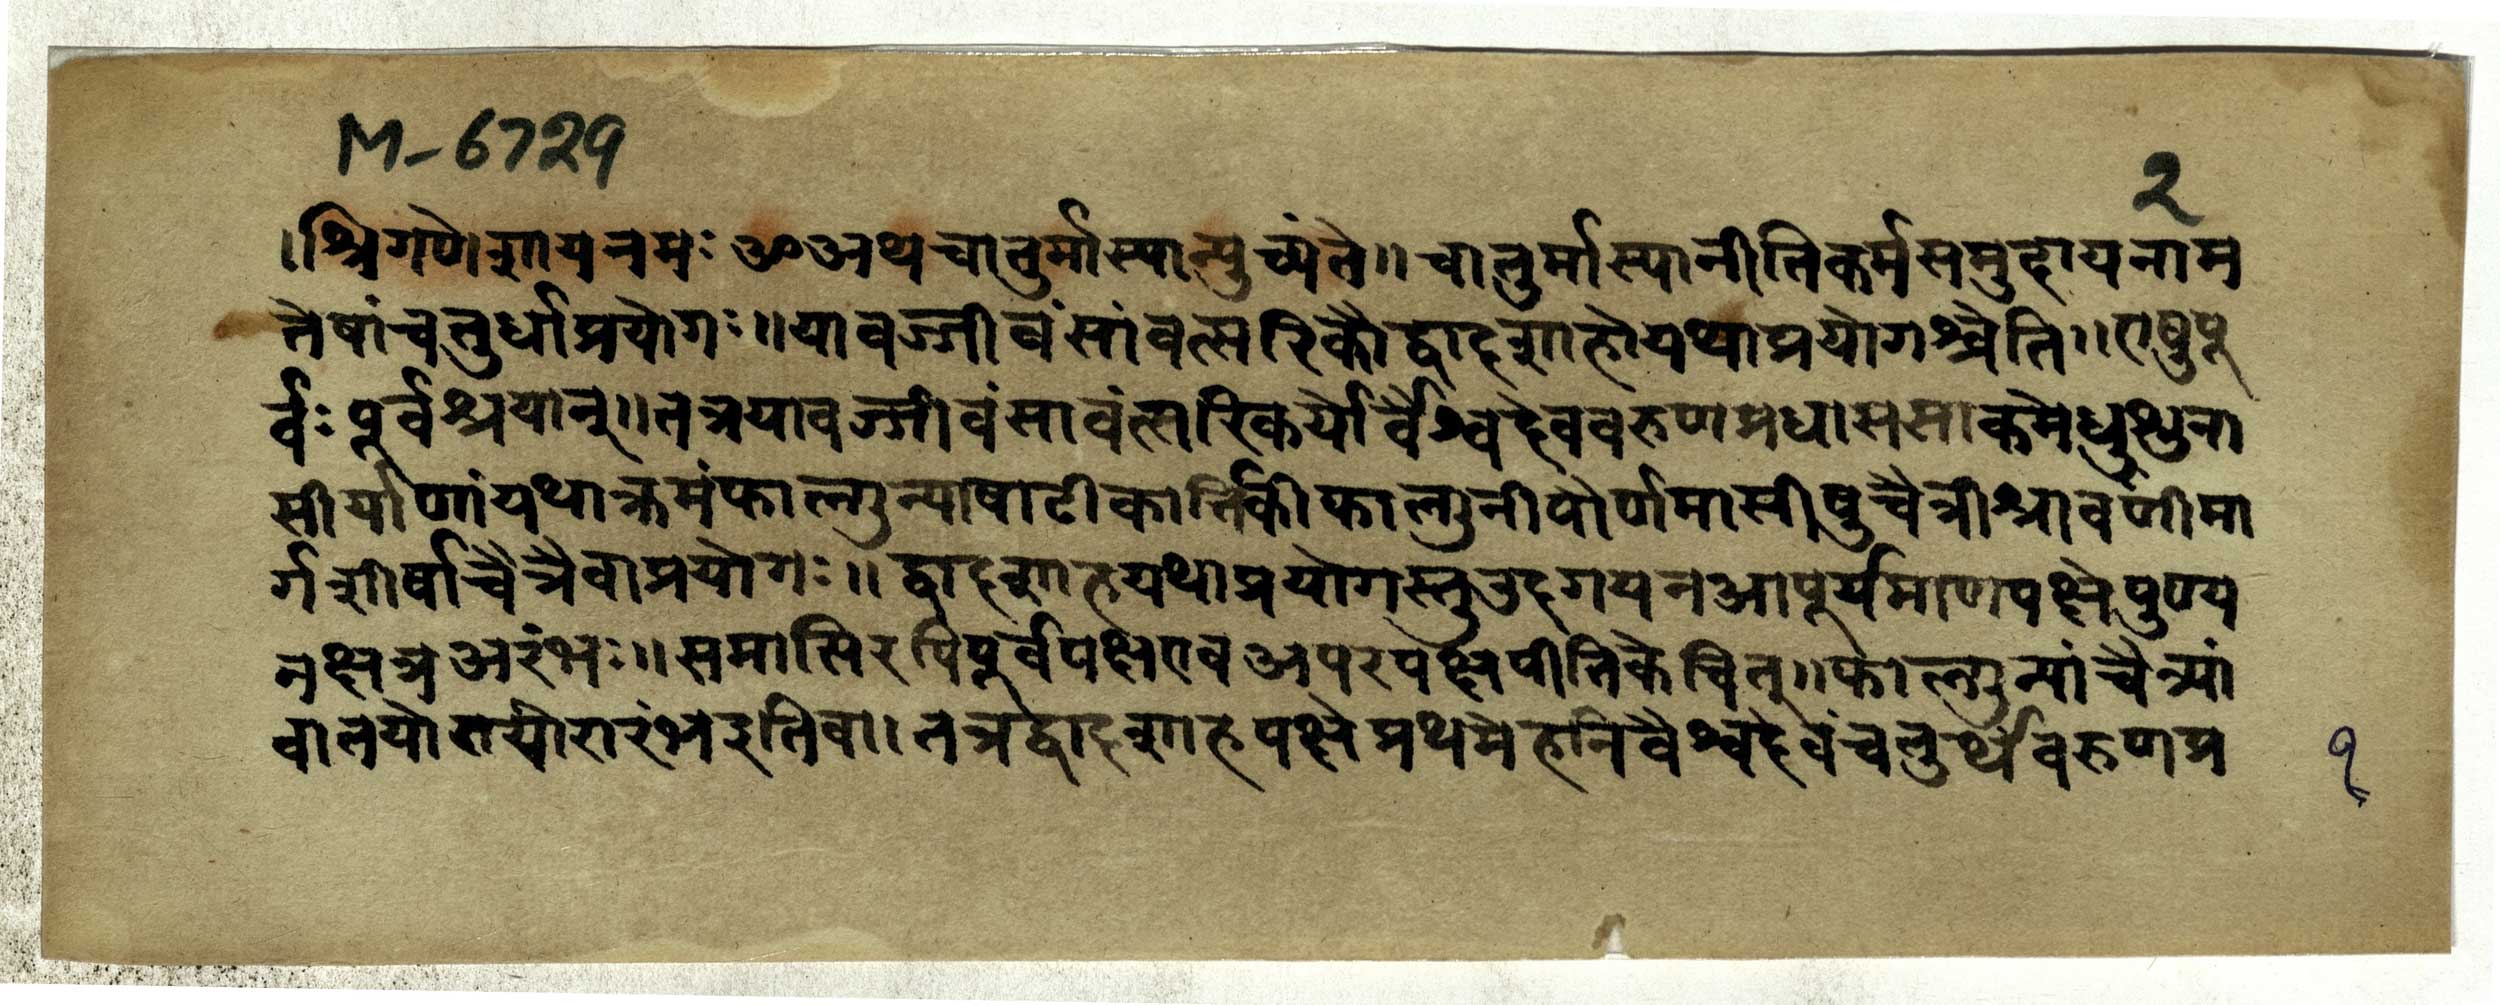 M-6729
२
।श्रिगणेशायनमः ॐअथचातुर्मास्यान्युच्यंते॥चातुर्मास्यानीतिकर्मसमुदायनाम
तेषांचतुर्धाप्रयोगः॥यावज्जीवंसांवत्सरिकोद्वादशाहोयथाप्रयोगश्चेति॥एषुपू
र्वः पूर्वश्रयान्॥तत्रयावज्जीवंसावंत्सरिकर्योर्वैश्वदेववरुणप्रधाससाकमेधुशुना
सीर्याणांयथाक्रमंफाल्गुन्याषाटीकार्त्तिकीफाल्गुनीपौर्णमासीषुचैत्रीश्रावणीमा
र्गशीर्षाचैत्रेवाप्रयोगः॥द्वादशाहयथाप्रयोगस्तुउदगयनआपूर्यमाणपक्षेपुण्य
नक्षत्रअरंभः॥समासिरपिपूर्वपक्षएवअपरपक्षेपीतिकेचित्॥फाल्गुन्यांचैत्र्यां
वातयोरारंभइतिवा।तत्रद्वादशाहपक्षेप्रथमेहनिवैश्वदेवंचतुर्थेवरुणप्र
१